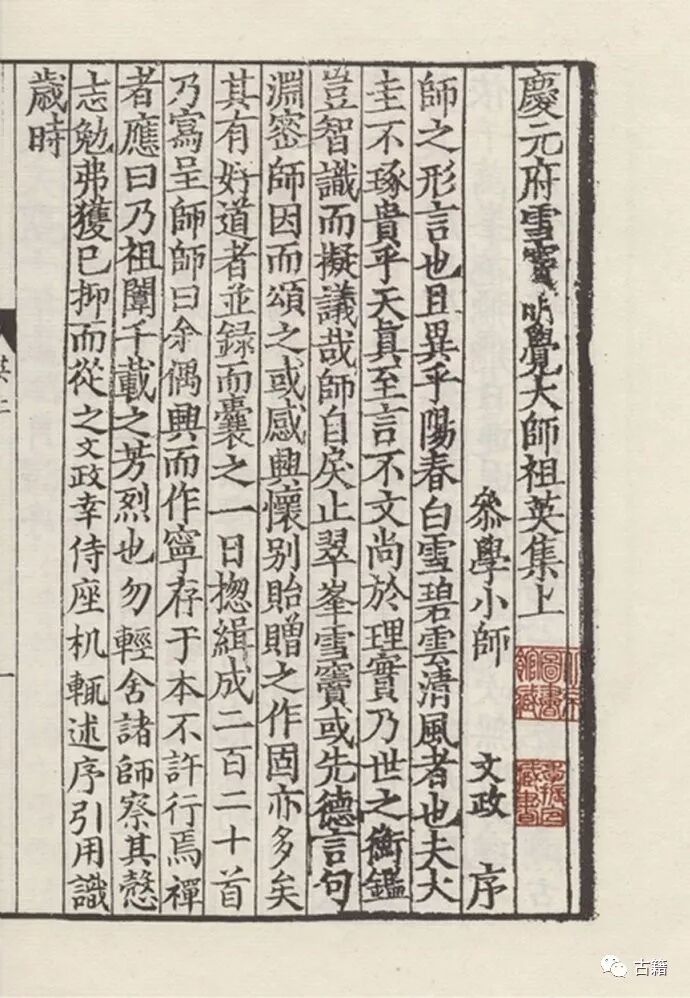 慶元府雪竇明覺大師祖英集上
叅學小師 文政 序
師之形言也且異乎陽春白雪碧雲清風者也夫大
圭不琢貴乎天真至言不文尚於理實乃世之衡鑑
豈智識而擬議哉師自戾止翠峯雪竇或先德言句
淵密師因而頌之或感興懷别貽贈之作固亦多矣
其有好道者並録而囊之一日惣緝成二百二十首
乃寫呈師師曰余偶興而作寧存于本不許行焉禪
者應曰乃祖闡千載之芳烈也勿輕舍諸師察其慤
志勉弗獲已抑而從之文政幸侍座机輒述序引用識
歲時
一
古籍